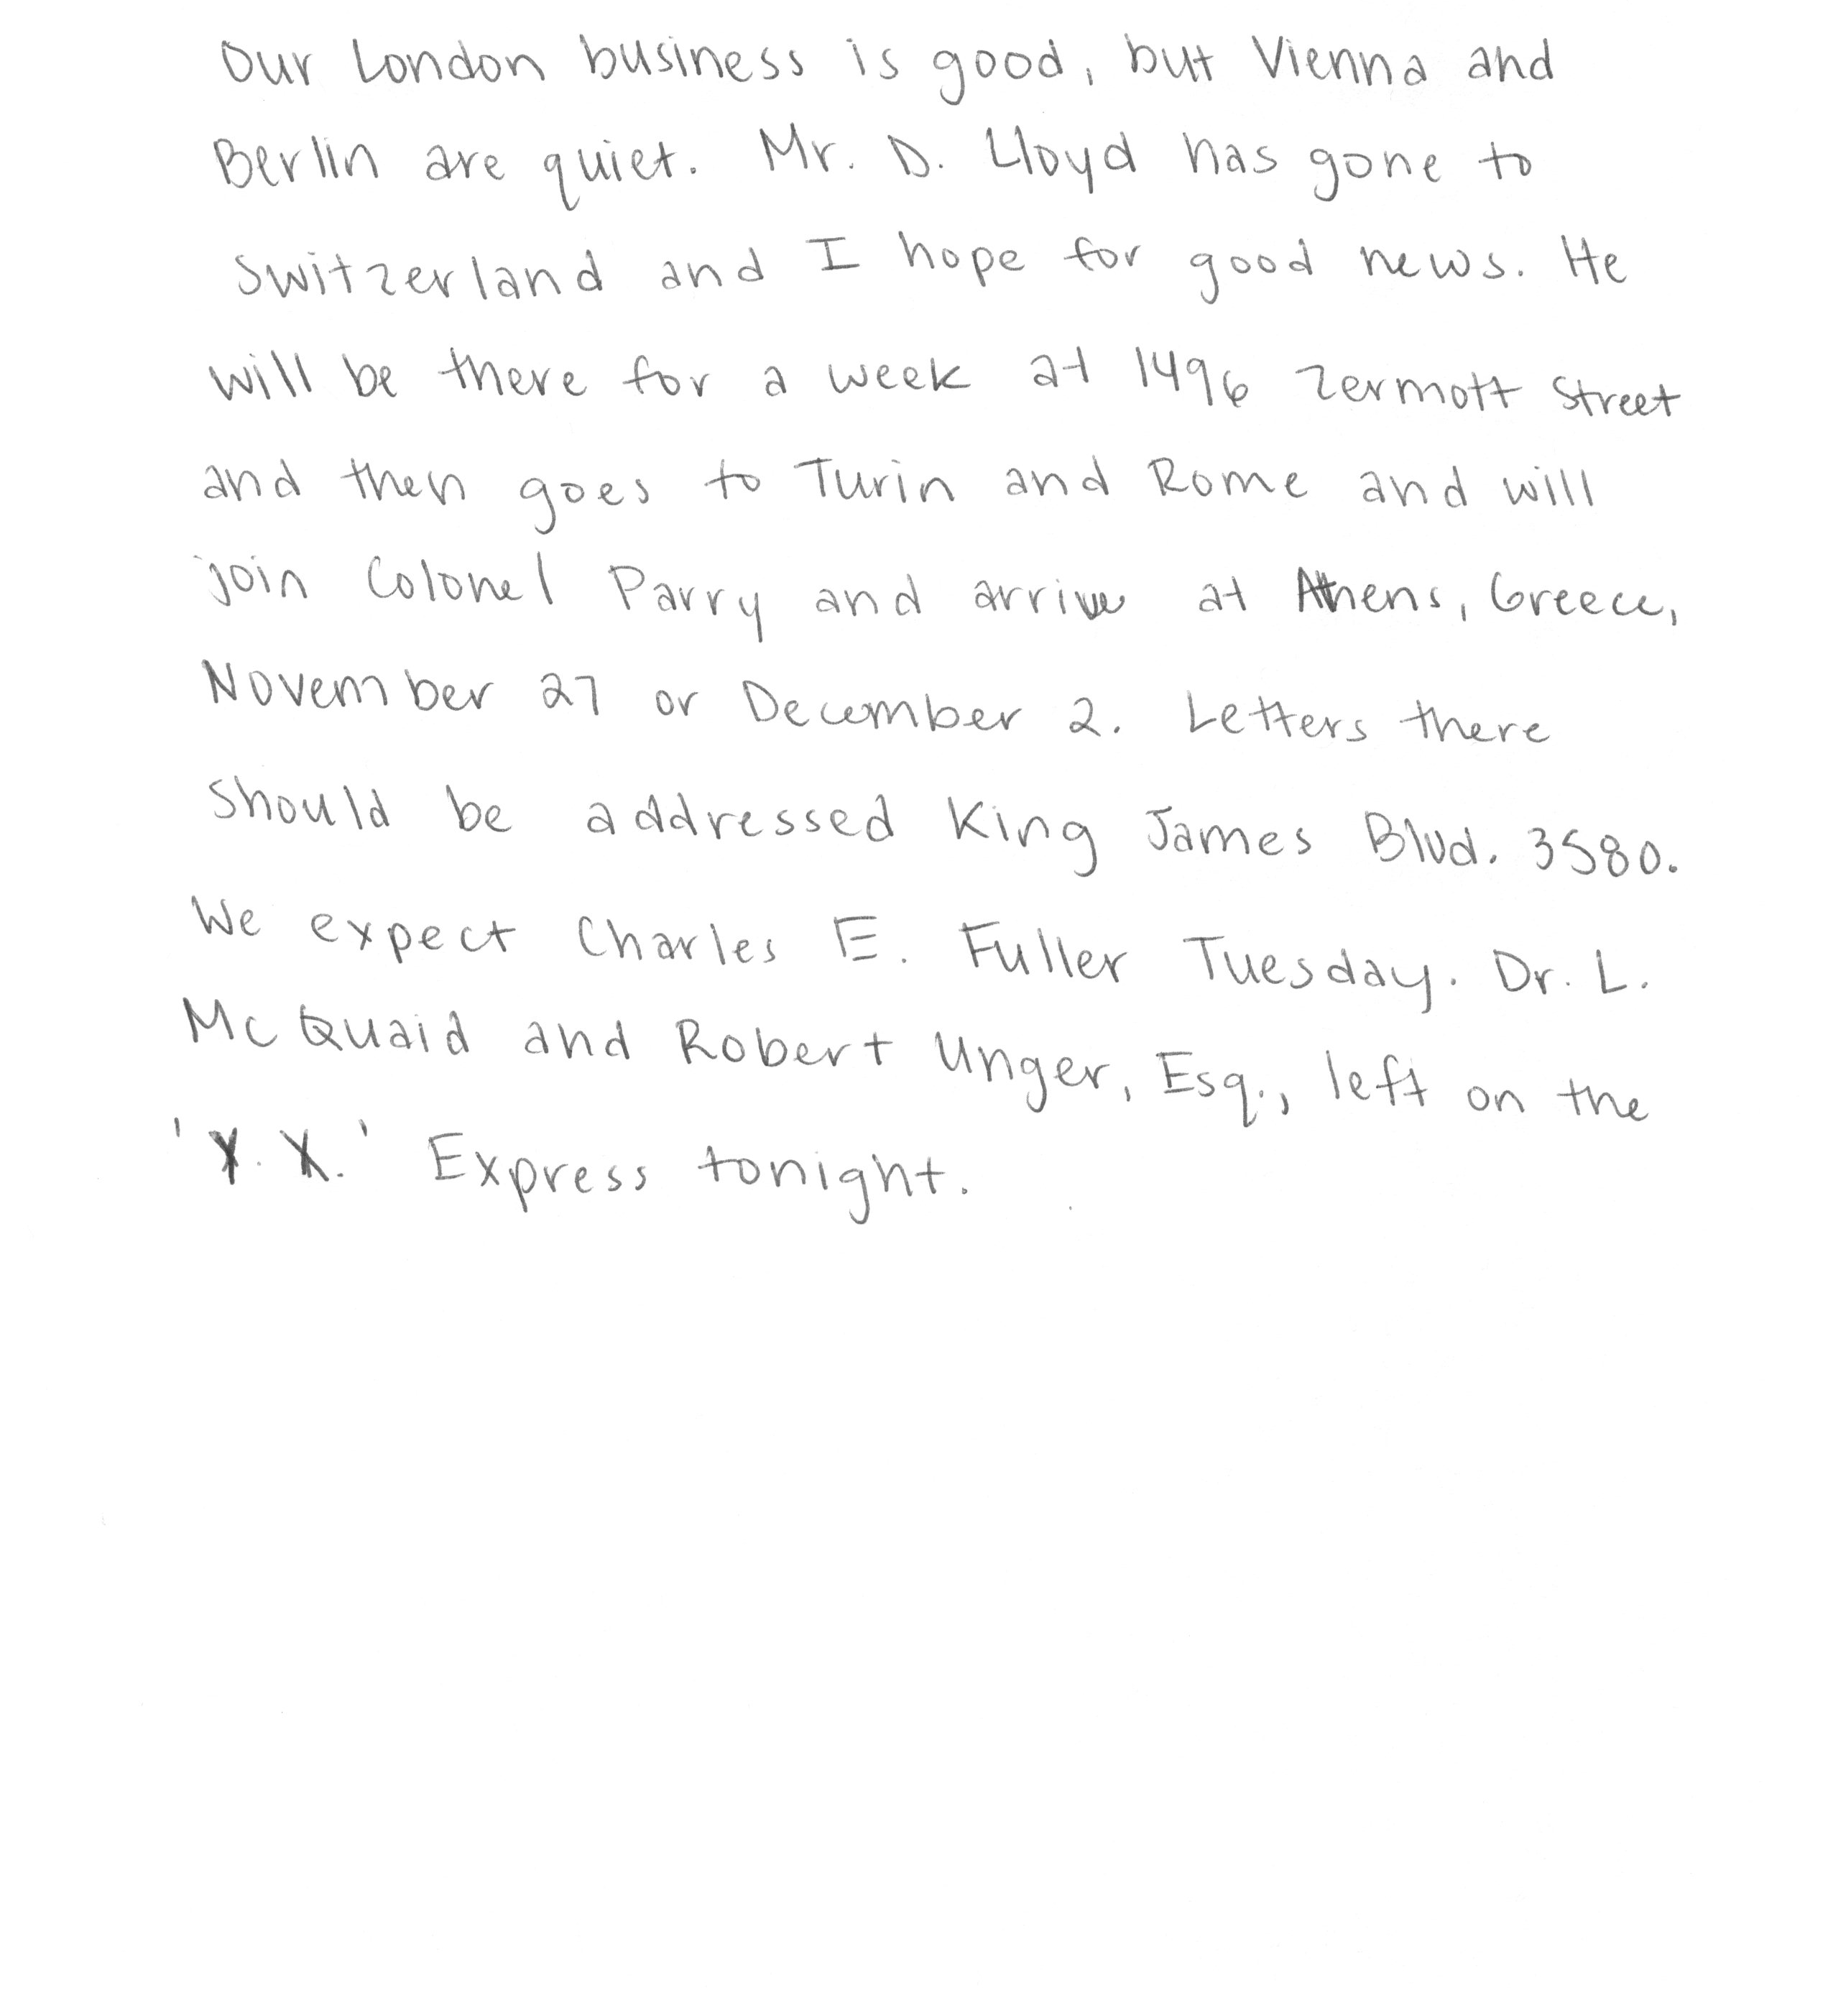 Our London business is good, but Vienna and
Berlin are quiet. Mr. D. Lloyd has gone to
Switzerland and I hope for good news. He
will be there for a week at 1496 Zermott Street
and then goes to Turin and Rome and will
join Colonel Parry and arrive at Athens, Greece,
November 27 or December 2. Letters there
should be addressed King James Blvd. 3580.
We expect Charles E. Fuller Tuesday. Dr. L.
McQuaid and Robert Unger, Esq., left on the
'Y. X.' Express tonight.